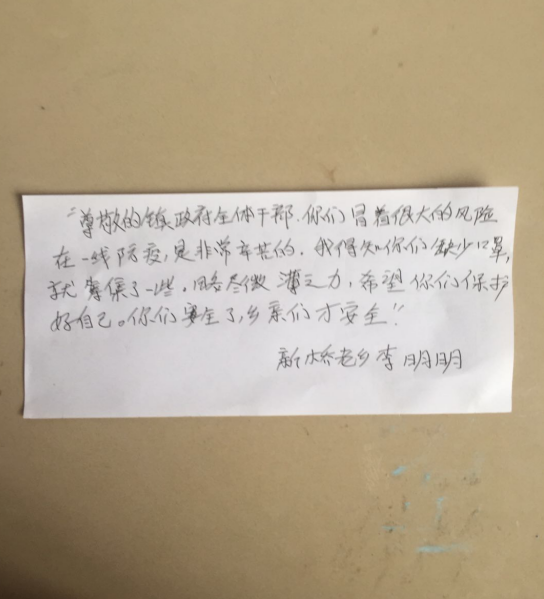 “尊敬的镇政府全体干部，你们冒着很大的风险
在一线防疫，是非常辛苦的。我得知你们缺少口罩，
就筹集了一些，略尽微薄之力，希望你们保护
好自己。你们安全了，乡亲们才安全！”
新桥老乡李明明